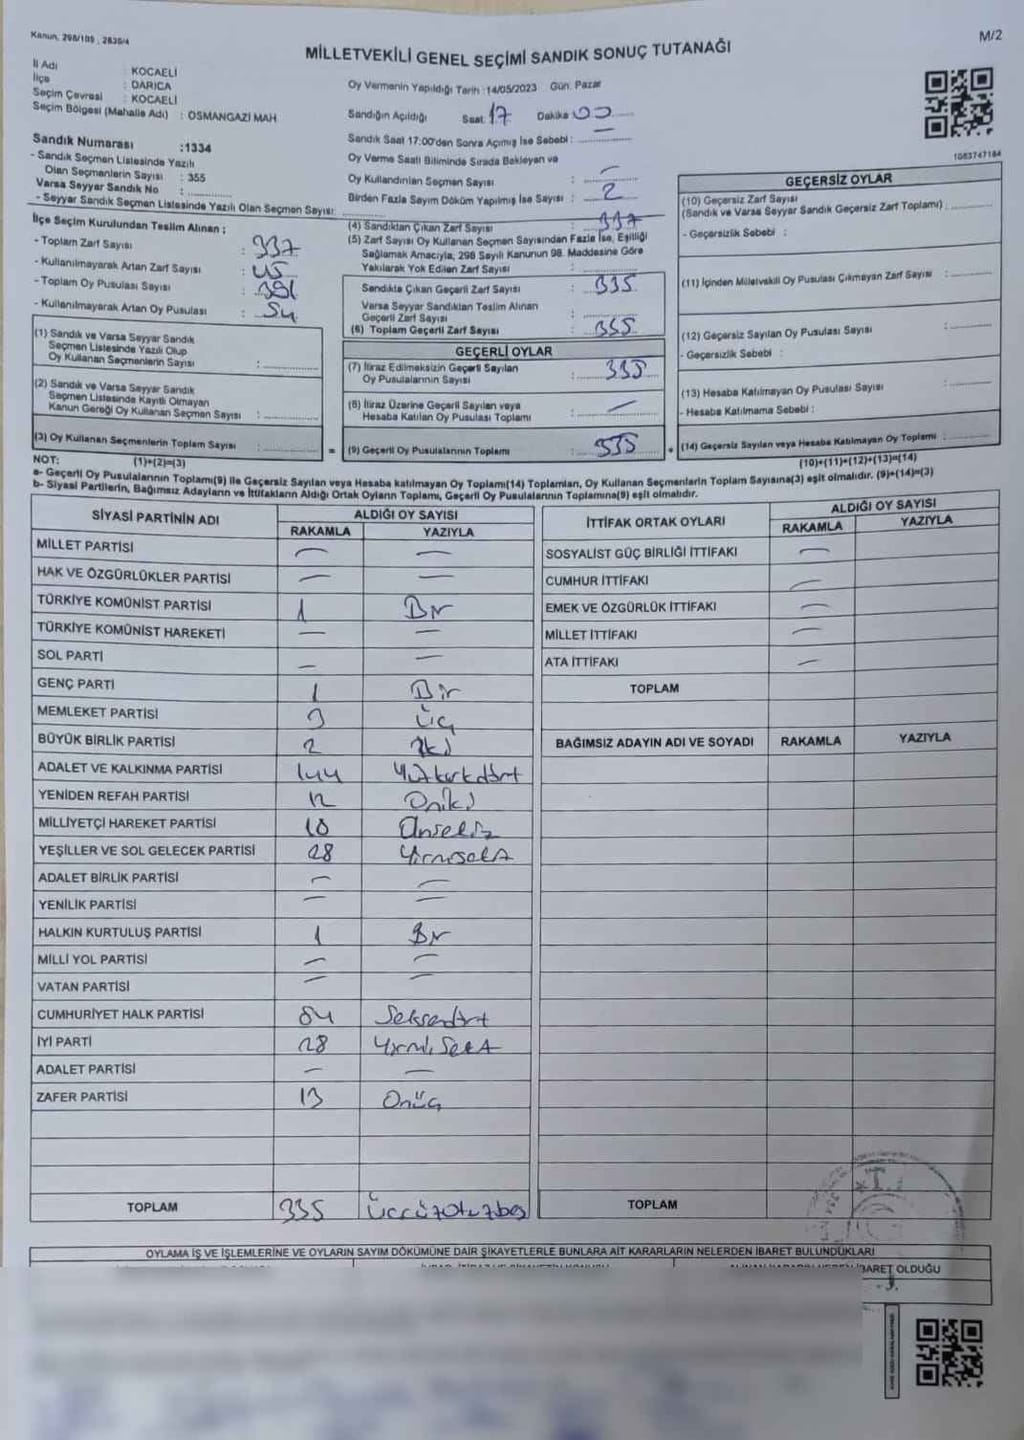 Kanun, 298/105 , 2839/4
M/2
MİLLETVEKİLİ GENEL SEÇİMİ SANDIK SONUÇ TUTANAĞI
İl Adı : KOCAELİ
İlçe : DARICA
Seçim Çevresi : KOCAELİ
Seçim Bölgesi (Mahalle Adı) : OSMANGAZİ MAH.
Sandık Numarası :1334
- Sandık Seçmen Listesinde Yazılı
Olan Seçmenlerin Sayısı : 355
Varsa Seyyar Sandık No :
- Seyyar Sandık Seçmen Listesinde Yazılı Olan Seçmen Sayısı:
Oy Vermenin Yapıldığı Tarih :14/05/2023 Gün: Pazar
Sandığın Açıldığı Saat: 17 Dakika 00
Sandık Saat 17:00'den Sonra Açımış İse Sebebi : —
Oy Verme Saati Bitiminde Sırada Bekleyen ve
Oy Kullandırılan Seçmen Sayısı : —
Birden Fazla Sayım Döküm Yapılmış İse Sayısı : 2
1083747184
İlçe Seçim Kurulundan Teslim Alınan ;
- Toplam Zarf Sayısı : 337
- Kullanılmayarak Artan Zarf Sayısı : 45
- Toplam Oy Pusulası Sayısı : 391
- Kullanılmayarak Artan Oy Pusulası : 54
(1) Sandık ve Varsa Seyyar Sandık
Seçmen Listesinde Yazılı Olup
Oy Kullanan Seçmenlerin Sayısı :
(2) Sandık ve Varsa Seyyar Sandık
Seçmen Listesinde Kayıtlı Olmayan
Kanun Gereği Oy Kullanan Seçmen Sayısı :
(3) Oy Kullanan Seçmenlerin Toplam Sayısı :
(1)+(2)=(3)
(4) Sandıktan Çıkan Zarf Sayısı : 337
(5) Zarf Sayısı Oy Kullanan Seçmen Sayısından Fazla İse, Eşitliği
Sağlamak Amacıyla, 298 Sayılı Kanunun 98. Maddesine Göre
Yakılarak Yok Edilen Zarf Sayısı :
Sandıkta Çıkan Geçerli Zarf Sayısı : 335
Varsa Seyyar Sandıktan Teslim Alınan
Geçerli Zarf Sayısı :
(6) Toplam Geçerli Zarf Sayısı : 335
GEÇERLİ OYLAR
(7) İtiraz Edilmeksizin Geçerli Sayılan
Oy Pusulalarının Sayısı : 335
(8) İtiraz Üzerine Geçerli Sayılan veya
Hesaba Katılan Oy Pusulası Toplamı : —
= (9) Geçerli Oy Pusulalarının Toplamı : 335
GEÇERSİZ OYLAR
(10) Geçersiz Zarf Sayısı
(Sandık ve Varsa Seyyar Sandık Geçersiz Zarf Toplamı)
- Geçersizlik Sebebi :
(11) İçinden Milletvekili Oy Pusulası Çıkmayan Zarf Sayısı :
(12) Geçersiz Sayılan Oy Pusulası Sayısı :
- Geçersizlik Sebebi :
(13) Hesaba Katılmayan Oy Pusulası Sayısı :
- Hesaba Katılmama Sebebi :
+ (14) Geçersiz Sayılan veya Hesaba Katılmayan Oy Toplamı :
(10)+(11)+(12)+(13)=(14)
NOT:
a- Geçerli Oy Pusulalarının Toplamı(9) ile Geçersiz Sayılan veya Hesaba katılmayan Oy Toplamı(14) Toplamları, Oy Kullanan Seçmenlerin Toplam Sayısına(3) eşit olmalıdır. (9)+(14)=(3)
b- Siyasi Partilerin, Bağımsız Adayların ve İttifakların Aldığı Ortak Oyların Toplamı, Geçerli Oy Pusulalarının Toplamına(9) eşit olmalıdır.
SİYASİ PARTİNİN ADI ALDIĞI OY SAYISI
RAKAMLA YAZIYLA
MİLLET PARTİSİ — —
HAK VE ÖZGÜRLÜKLER PARTİSİ — —
TÜRKİYE KOMÜNİST PARTİSİ 1 Bir
TÜRKİYE KOMÜNİST HAREKETİ — —
SOL PARTİ — —
GENÇ PARTİ 1 Bir
MEMLEKET PARTİSİ 3 Üç
BÜYÜK BİRLİK PARTİSİ 2 İki
ADALET VE KALKINMA PARTİSİ 144 Yüzkırkdört
YENİDEN REFAH PARTİSİ 12 Oniki
MİLLİYETÇİ HAREKET PARTİSİ 18 Onsekiz
YEŞİLLER VE SOL GELECEK PARTİSİ 28 Yirmisekiz
ADALET BİRLİK PARTİSİ — —
YENİLİK PARTİSİ — —
HALKIN KURTULUŞ PARTİSİ 1 Bir
MİLLİ YOL PARTİSİ — —
VATAN PARTİSİ — —
CUMHURİYET HALK PARTİSİ 84 Seksendört
İYİ PARTİ 28 Yirmi Sekiz
ADALET PARTİSİ — —
ZAFER PARTİSİ 13 Onüç
TOPLAM 335 Üçyüzotuzbeş
İTTİFAK ORTAK OYLARI ALDIĞI OY SAYISI
RAKAMLA YAZIYLA
SOSYALİST GÜÇ BİRLİĞİ İTTİFAKI —
CUMHUR İTTİFAKI —
EMEK VE ÖZGÜRLÜK İTTİFAKI —
MİLLET İTTİFAKI —
ATA İTTİFAKI —
TOPLAM
BAĞIMSIZ ADAYIN ADI VE SOYADI RAKAMLA YAZIYLA
TOPLAM
OYLAMA İŞ VE İŞLEMLERİNE VE OYLARIN SAYIM DÖKÜMÜNE DAİR ŞİKAYETLERLE BUNLARA AİT KARARLARIN NELERDEN İBARET BULUNDUKLARI
İBARET OLDUĞU